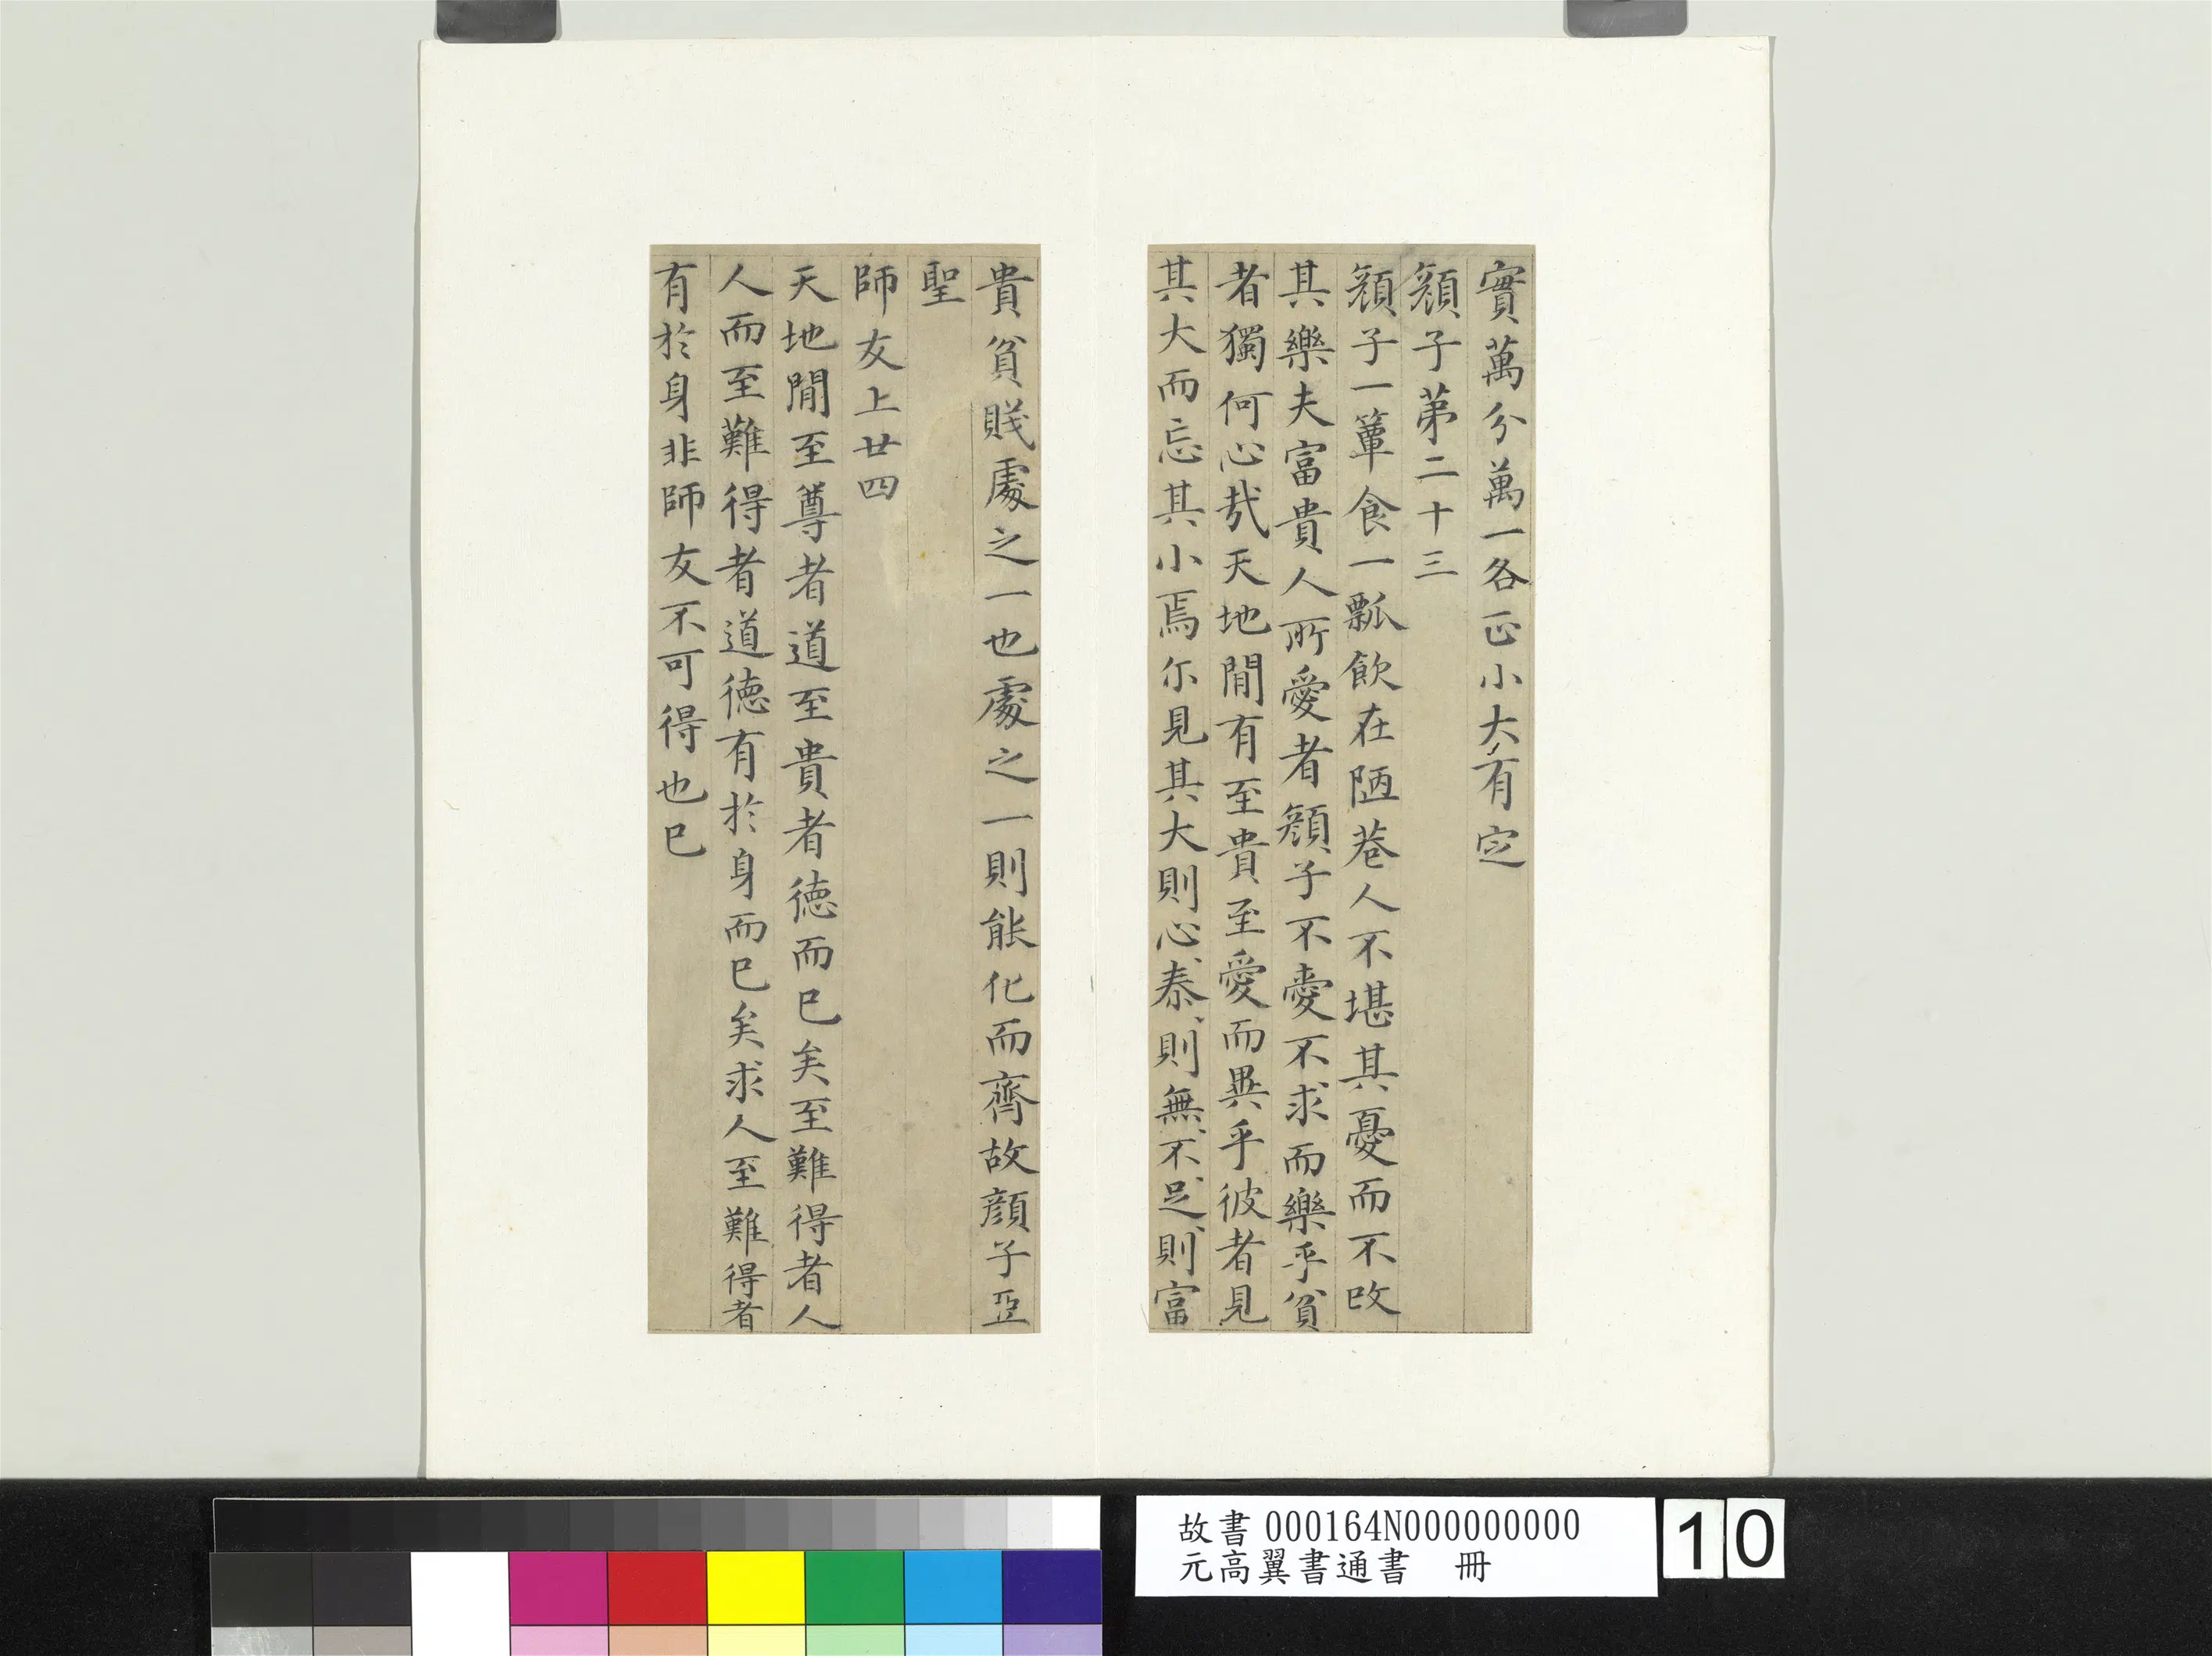 實萬分萬一各正小大有定
顔子弟二十三
顔子一簞食一瓢飲在陋巷人不堪其憂而不改
其樂夫富貴人所愛者顔子不愛不求而樂乎貧
者獨何心哉天地閒有至貴至愛而異乎彼者見
其大而忘其小焉尓見其大則心泰則無不足則富
貴貧賤處之一也處之一則能化而齊故顔子亞
聖
師友上廿四
天地閒至尊者道至貴者德而已矣至難得者人
人而至難得者道德有於身而已矣求人至難得者
有於身非師友不可得也已
故書 000164N000000000
元高翼書通書 冊
10